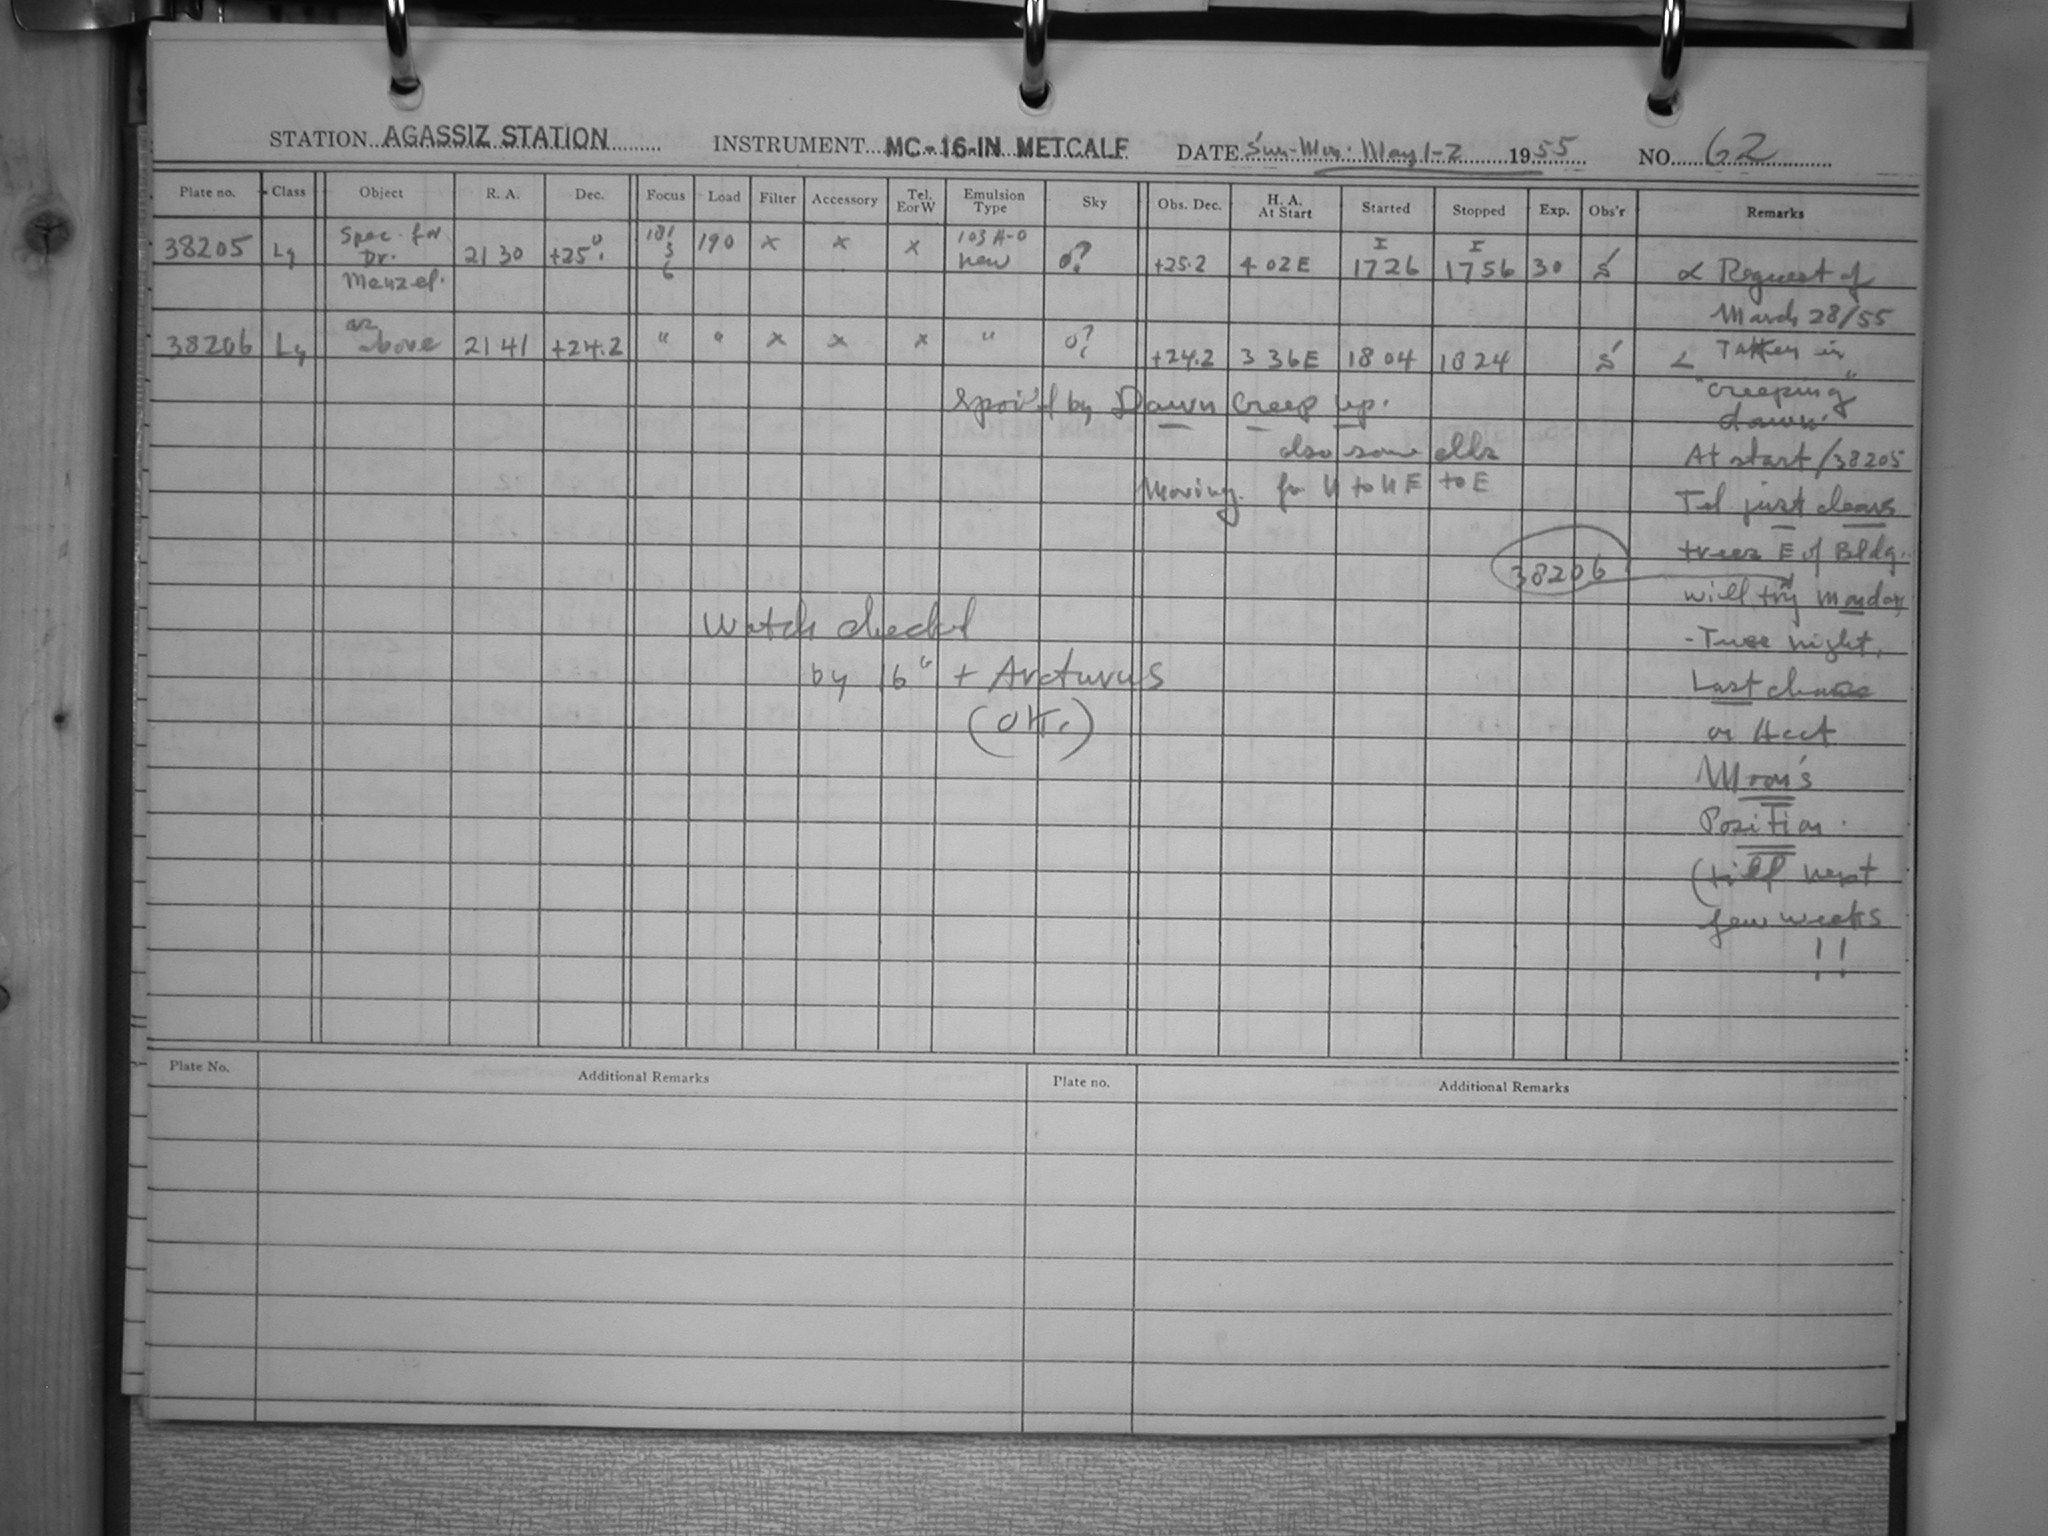 STATION AGASSIZ STATION INSTRUMENT MC-16-IN METCALF DATE Sun-Mon. May 1-2 1955 NO. 62
Plate no. Class Object R. A. Dec. Focus Load Filter Accessory Tel. E or W Emulsion Type Sky Obs. Dec. H. A. At Start Started Stopped Exp. Obs'r Remarks
38205 Spec. for Dr. Menzel. 21 30 +25° 190 x x x 103 A-O new +25.2 4 02 E 1726 1756 30 S Request of
March 28/55
38206 as above 21 41 +24.2 " " x x x " +24.2 3 36 E 1804 1824 S Taken in
"creeping"
dawn.
Spoil'd by Dawn Creep up.
also some clds
Moving. fm N to NE to E
At start/38205
Tel just clears
trees E of Bldg.
38206
will try Monday
-Tues night.
Last chance
on Acct
Moon's
Position.
(till next
few weeks
!!
Watch check'd
by 16" + Arcturus
(OK.)
Plate No. Additional Remarks Plate no. Additional Remarks